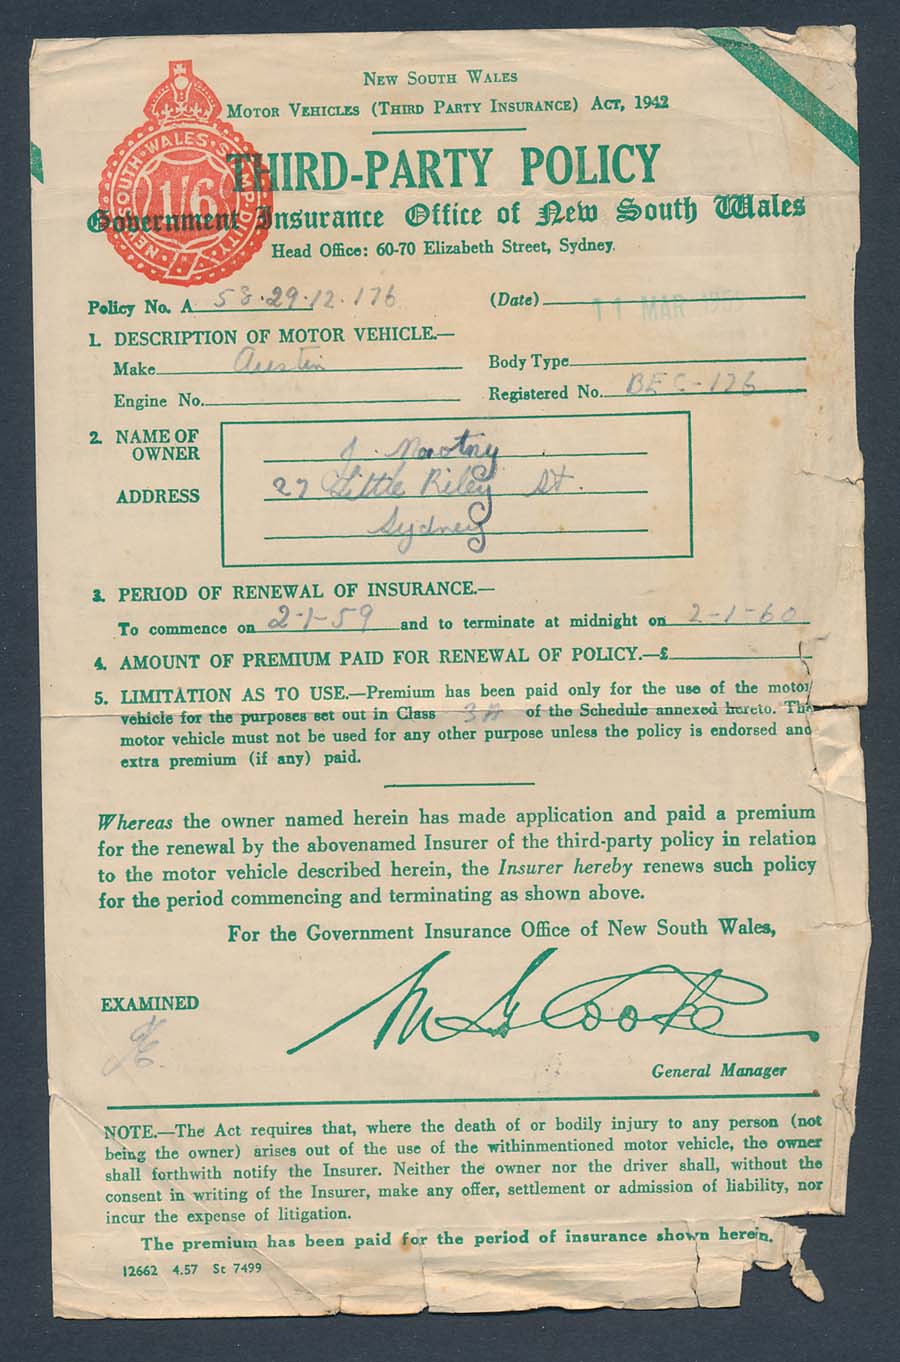 NEW SOUTH WALES
MOTOR VEHICLES (THIRD PARTY INSURANCE) ACT, 1942
NEW·SOUTH·WALES·STAMP·DUTY·
1/6
THIRD-PARTY POLICY
Government Insurance Office of New South Wales
Head Office: 60-70 Elizabeth Street, Sydney.
Policy No. A 58·29·12·176 (Date) 11 MAR 1959
1. DESCRIPTION OF MOTOR VEHICLE.—
Make Austin Body Type
Engine No. Registered No. BEC-176
2. NAME OF OWNER J.
ADDRESS 27 Little Riley St.
Sydney
3. PERIOD OF RENEWAL OF INSURANCE.—
To commence on 2-1-59 and to terminate at midnight on 2-1-60
4. AMOUNT OF PREMIUM PAID FOR RENEWAL OF POLICY.—£
5. LIMITATION AS TO USE.—Premium has been paid only for the use of the motor
vehicle for the purposes set out in Class 3A of the Schedule annexed hereto. The
motor vehicle must not be used for any other purpose unless the policy is endorsed and
extra premium (if any) paid.
Whereas the owner named herein has made application and paid a premium
for the renewal by the abovenamed Insurer of the third-party policy in relation
to the motor vehicle described herein, the Insurer hereby renews such policy
for the period commencing and terminating as shown above.
For the Government Insurance Office of New South Wales,
EXAMINED
M G Cooke
General Manager
NOTE.—The Act requires that, where the death of or bodily injury to any person (not
being the owner) arises out of the use of the withinmentioned motor vehicle, the owner
shall forthwith notify the Insurer. Neither the owner nor the driver shall, without the
consent in writing of the Insurer, make any offer, settlement or admission of liability, nor
incur the expense of litigation.
The premium has been paid for the period of insurance shown herein.
12662 4.57 St 7499